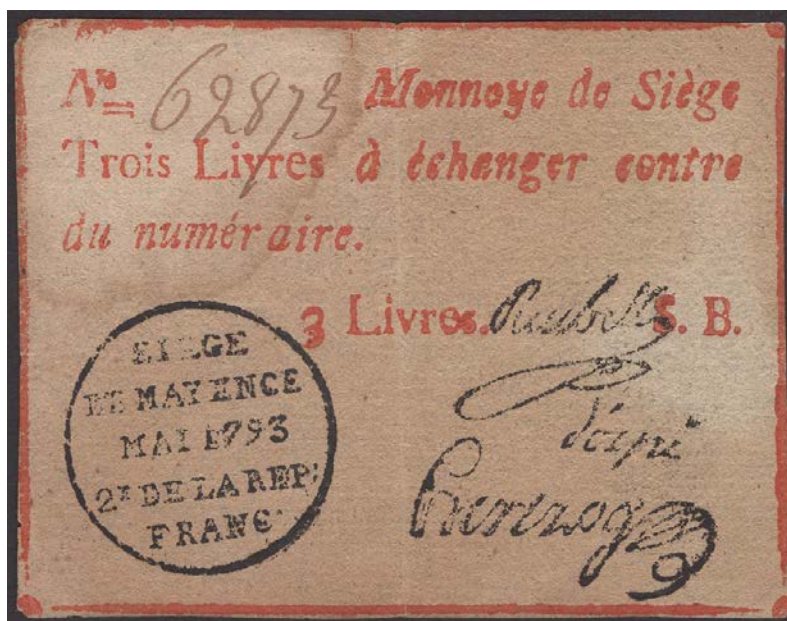 No 62873 Monnoye de Siège
Trois Livres à échanger contre
du numéraire.
3 Livres. Reubell S. B.
SIEGE
DE MAYENCE
MAI 1793
2E DE LA REP:
FRANC.